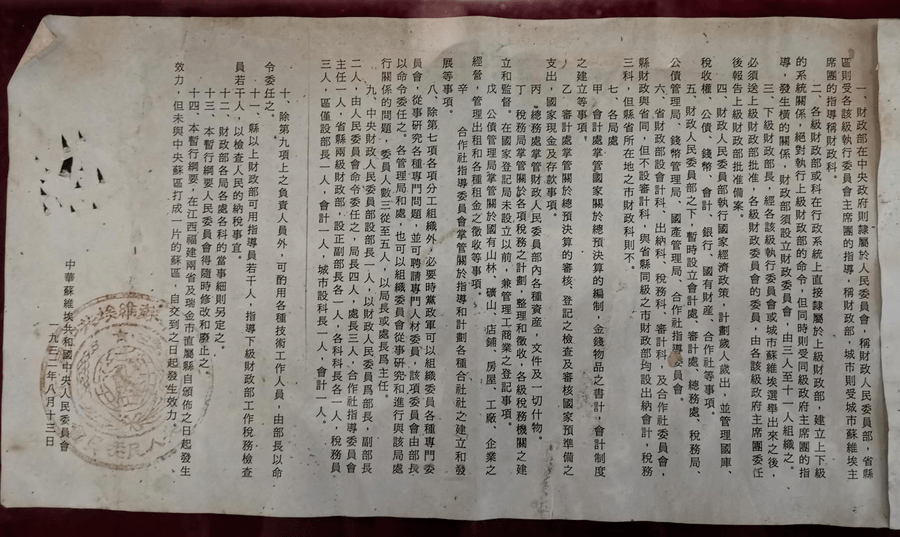 一、財政部在中央政府則隸屬於人民委員會，稱財政人民委員部，省縣
區則受各該級執行委員會主席團的指導，稱財政部，城市則受城市蘇維埃主
席團的指導稱財政科。
二、各級財政部或科在行政系統上直接隸屬於上級財政部，建立上下級
的系統關係，絕對執行上級財政部的命令，但同時則受同級政府主席團的指
導，發生橫的關係，財政部須設立財政委員會，由三人至十一人組織之。
三、下級財政部長，經各該級執行委員會或城市蘇維埃選舉出來之後，
必須送上級財政部批准，各級財政委員會的委員，由各該級政府主席團委任
後報告上級財政部批准備案。
四、財政人民委員部執行國家經濟政策，計劃歲入歲出，並管理國庫、
稅收權、公債、錢幣、會計、銀行、國有財産、合作社等事項。
五、財政人民委員部之下，暫時設立會計處、審計處、總務處、稅務局、
公債管理局、錢幣管理局、國產管理局、合作社指導委員會。
六、省財政部設會計科、出納科、稅務科、審計科，及合作社委員會，
縣財政與省同，但不設審計科，與省縣同級之市財政部均設出納會計，稅務
三科，但縣省所在地之市財政科則不
七、各局處
甲、會計處掌管國家關於總預決算的編制，金錢物品之書計，會計制度
之建立等事項。
乙、審計處掌管關於總預決算的審核、登記之檢查及審核國家預準備之
支出，國家現金及存款事項。
丙、總務處掌管財政人民委員部內各種資產，文件及一切什物。
丁、稅務局掌管關於各項稅務之計劃，整理和徵收，各級稅務機關之建
立和監督。在國家登記局未設立以前，兼管理工商業之登記事項。
戊、公債管理局掌管關於國有山林、礦山、店鋪、房屋、工廠、企業之
經營，管理出租和各種租金之徵收等事項。
辛、合作社指導委員會掌管關於指導和計劃各種合社社之建立和發
展等事項。
八、除第七項各項分工組織外，必要時黨政軍可以組織委員各種專門委
員會，從事研究各種專門問題，並可聘請專門人材委員，該項委員會由部長
以命令委任之。各管理局和處，也可以組織委員會從事研究和進行與該局處
行關係的問題，委員人數三從至五人，以局長或處長爲主任。
九、中央財政人民委員部設部長一人，以財政人民委員爲部長，副部長
二人，由人民委員會命令委任之，局長四人，處長三人，合作社指導委員會
主任一人，省縣兩級財政部，設正副部長各一人，各科科長各一人，稅務員
三人，區僅設部長一人，會計一人，城市設科長一人，會計一人。
十、除第九項上之負責人員外，可酌用各種技術工作人員，由部長以命
令委任之。
十一、縣以上財政部可用指導員若干人，指導下級財政部工作稅務檢查
員若干人，以檢查人民的納稅事宜。
十二、財政部各局各處各科的當事細則另定之。
十三、本暫行綱要人民委員會得隨時修改和廢止之。
十四、本暫行綱要，在江西福建兩省及瑞金市直屬縣自頒佈之日起發生
效力，但未與中央蘇區打成一片的蘇區，自交到之日起發生效力。
中華蘇維埃共和國中央人民委員會
一九三二年八月十三日